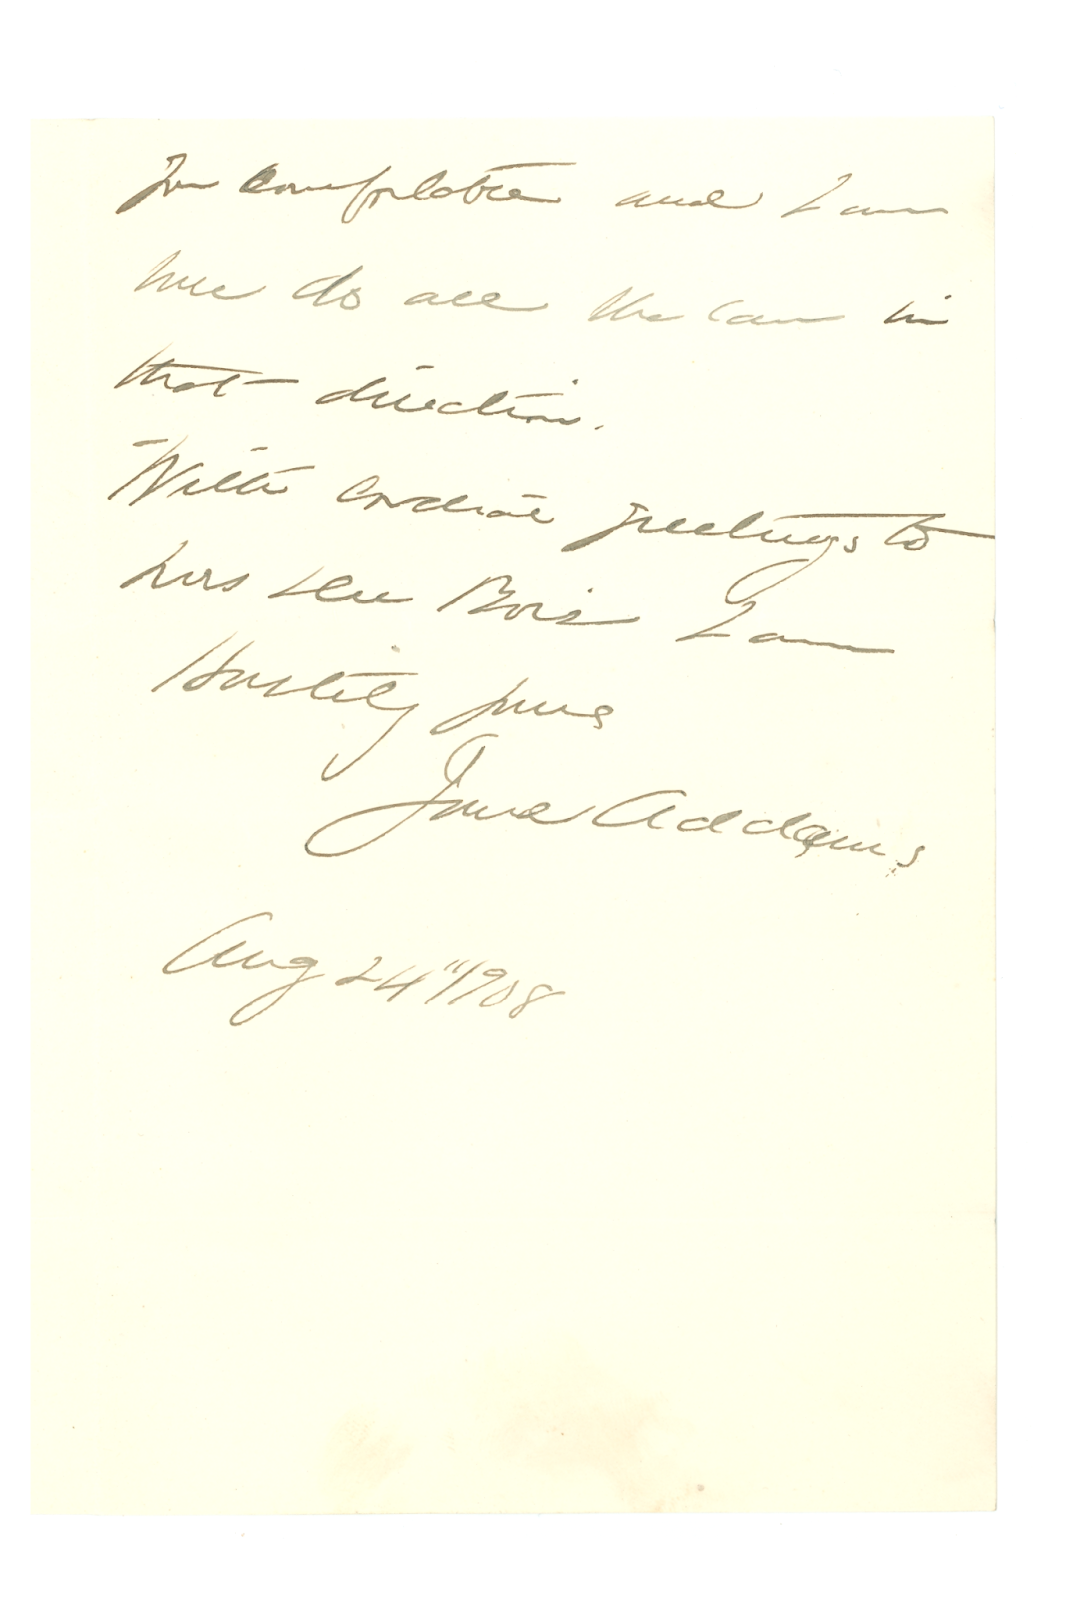 you comfortable and I am
will do all she can in
that direction.
With cordial greetings to
Mrs Du Bois I am
Hastily yours
Jane Addams
Aug 24" 1908